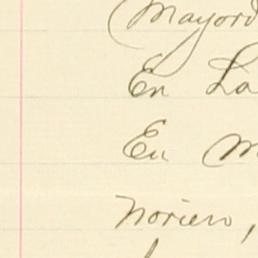 Mayord
En La
En M
Norien,